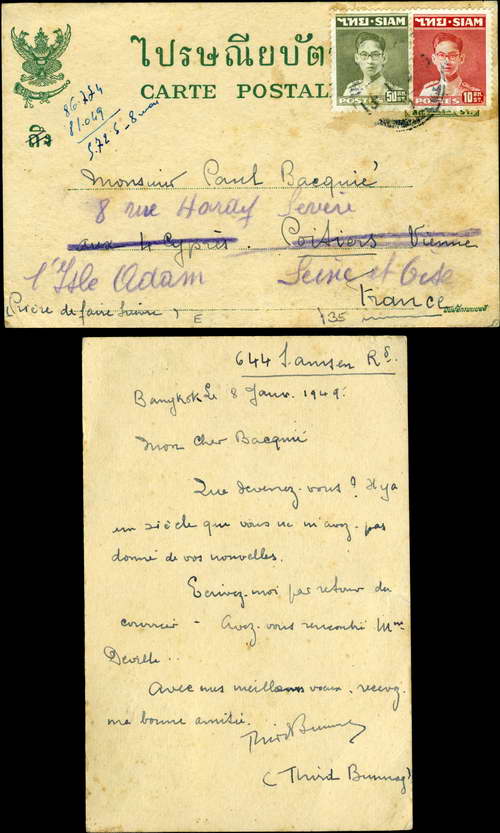 ไปรษณียบัตร
CARTE POSTALE
ไทย-SIAM
ไทย-SIAM
50 ST.
10 ST.
POSTES
POSTES
86.774
81.049
5.725
ถึง
Monsieur Paul Bacquié
8 rue Séverè
aux 4 Cyprès. Poitiers Vienne
l'Isle Adam Seine et Oise
France
(Prière de faire suivre) E 135
644 Samsen Rd.
Bangkok le 8 Janv. 1949.
Mon cher Bacquié
Que devenez-vous? Il y a
un siècle que vous ne m'avez pas
donné de vos nouvelles.
Ecrivez-moi par retour du
courrier - Avez-vous rencontré Mme
Deville..
Avec mes meilleurs voeux, recevez
ma bonne amitié.
Third Bunnag
(Third Bunnag)